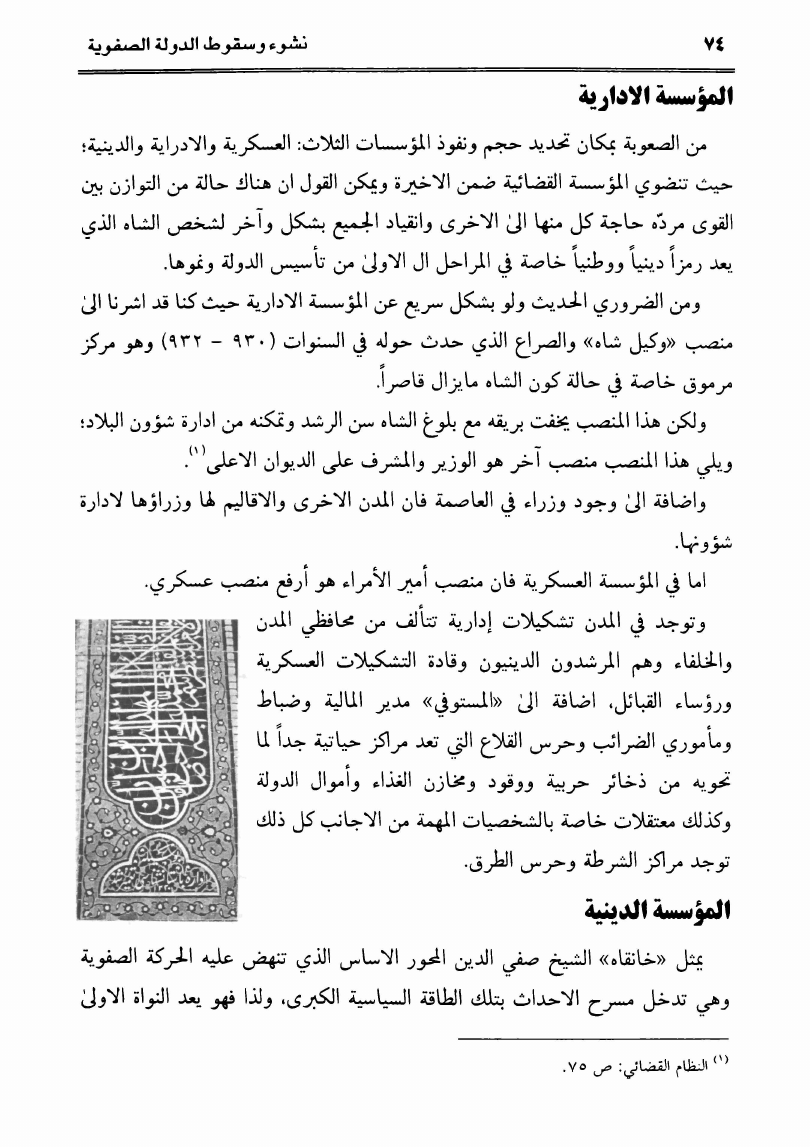 ٧٤
نشوء وسقوط الدولة الصفوية
المؤسسة الادارية
من الصعوبة بمكان تحديد حجم ونفوذ المؤسسات الثلاث: العسكرية والادراية والدينية؛
حيث تنضوي المؤسسة القضائية ضمن الاخيرة ويمكن القول ان هناك حالة من التوازن بين
القوى مردّه حاجة كل منها الىٰ الاخرى وانقياد الجميع بشكل وآخر لشخص الشاه الذي
يعد رمزاً دينياً ووطنياً خاصة في المراحل ال الاولىٰ من تأسيس الدولة ونموها.
ومن الضروري الحديث ولو بشكل سريع عن المؤسسة الادارية حيث كنا قد اشرنا الىٰ
منصب «وكيل شاه» والصراع الذي حدث حوله في السنوات (٩٣٠ - ٩٣٢) وهو مركز
مرموق خاصة في حالة كون الشاه مايزال قاصراً.
ولكن هذا المنصب يخفت بريقه مع بلوغ الشاه سن الرشد وتمكنه من ادارة شؤون البلاد؛
ويلي هذا المنصب منصب آخر هو الوزير والمشرف على الديوان الاعلى(١).
واضافة الىٰ وجود وزراء في العاصمة فان المدن الاخرى والاقاليم لها وزراؤها لادارة
شؤونها.
اما في المؤسسة العسكرية فان منصب أمير الأمراء هو أرفع منصب عسكري.
وتوجد في المدن تشكيلات إدارية تتألف من محافظي المدن
والخلفاء وهم المرشدون الدينيون وقادة التشكيلات العسكرية
ورؤساء القبائل، اضافة الىٰ «المستوفي» مدير المالية وضباط
ومأموري الضرائب وحرس القلاع التي تعد مراكز حياتية جداً لما
تحويه من ذخائر حربية ووقود ومخازن الغذاء وأموال الدولة
وكذلك معتقلات خاصة بالشخصيات المهمة من الاجانب كل ذلك
توجد مراكز الشرطة وحرس الطرق.
المؤسسة الدينية
يمثل «خانقاه» الشيخ صفي الدين المحور الاساس الذي تنهض عليه الحركة الصفوية
وهي تدخل مسرح الاحداث بتلك الطاقة السياسية الكبرى، ولذا فهو يعد النواة الاولىٰ
(١) النظام القضائي: ص ٧٥.